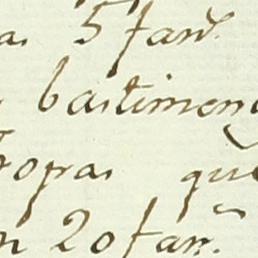 as 5 fan.s
bastimen
tropas que
n 20 fan.s